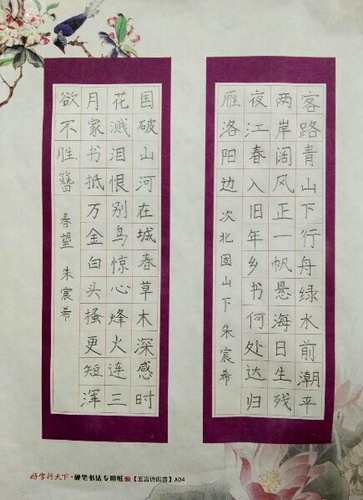 客路青山下行舟绿水前潮平
两岸阔风正一帆悬海日生残
夜江春入旧年乡书何处达归
雁洛阳边 次北固山下 朱宸希
国破山河在城春草木深感时
花溅泪恨别鸟惊心烽火连三
月家书抵万金白头搔更短浑
欲不胜簪 春望 朱宸希
好字行天下·硬笔书法专用纸 A04